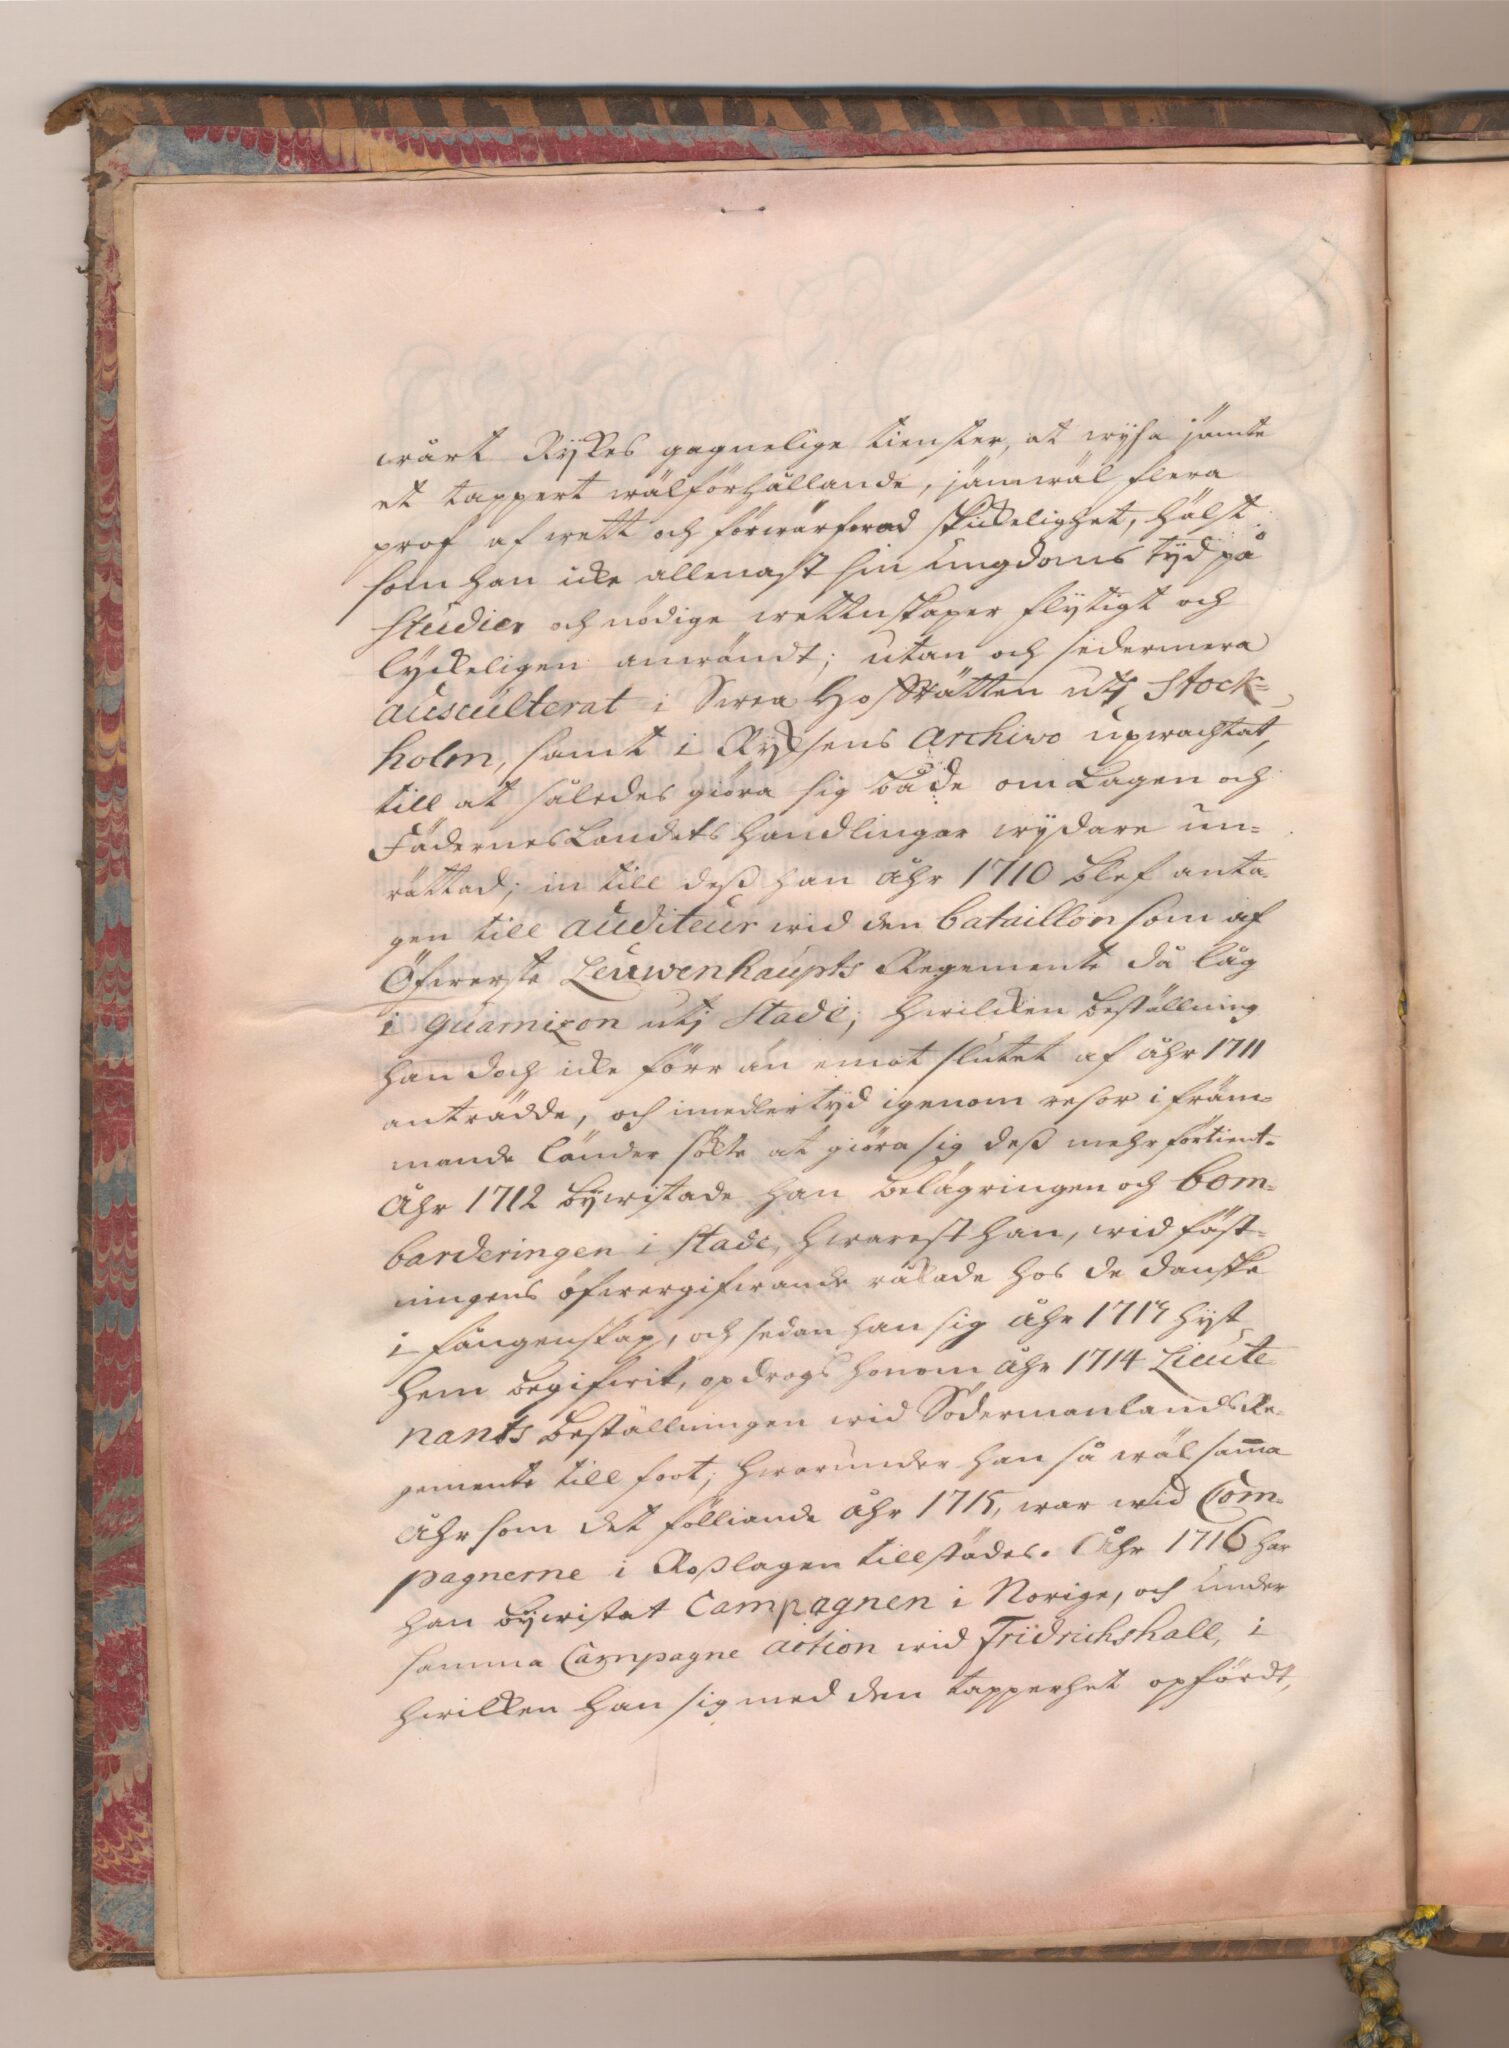 wårt Rykes gagnelige tienster, at wysa jämte
et tappert wälförhållande, jämwäl flera
prof af wett och förwärfwad skickelighet, hälst
som han icke allenast sin ungdoms tÿd på
Studier och nödige wettnskaper flytigt och
lyckeligen anwändt; utan och sedermera
ausculterat i Swea HofRätten utj Stock-
holm, samt i Ryksens Archivo upwachtat,
till at således giöra sig både om Lagen och
FädernesLandets handlingar wydare un-
rättad; in till deß han åhr 1710 blef anta-
gen till auditeur wid den bataillon som af
Öfwerste Leuwenhaupts Regemente då låg
i guarnizon utj Stade; hwilcken beställning
han doch icke förr än emot slutet af åhr 1711
anträdde, och imedlertyd igenom resor i främ-
mande länder sökte at giöra sig deß mehr förtient.
Åhr 1712 bÿwistade han belägringen och bom-
barderingen i Stade, hwarest han, wid fäst-
ningens öfwergifwande råkade hos de danske
i fångenskap, och sedan han sig åhr 1713 hyst
hem begifwit, opdrogs honom åhr 1714 Lieute-
nants beställningen wid Södermanlands Re-
gemente till foot; hwarunder han så wäl sama
åhr som det fölliande åhr 1715, war wid Com-
pagnerne i Roßlagen tillstädes. Åhr 1716 har
han bÿwistat Campagnen i Norige, och under
samma Campagne action wid Fridrichshall, i
hwilken han sig med den tapperhet opfördt,